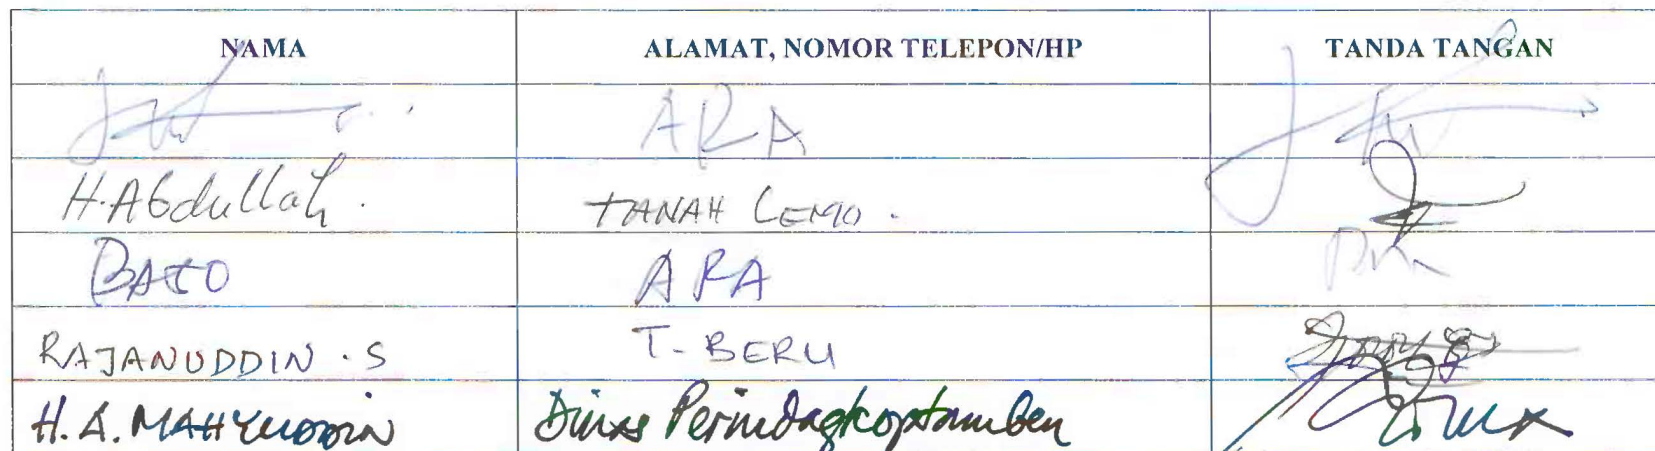 NAMA ALAMAT, NOMOR TELEPON/HP TANDA TANGAN
ARA
H. Abdullah. TANAH LEMO.
ARA
RAJANUDDIN. S T- BERU
H. A. MAHYUDDIN Dinas Perindagkoptamben